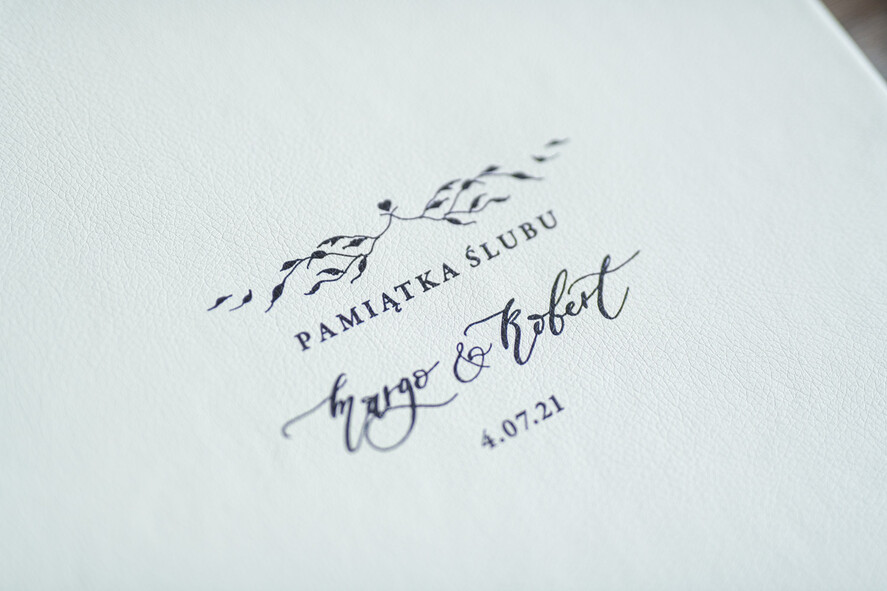 PAMIĄTKA ŚLUBU
Margo & Robert
4.07.21